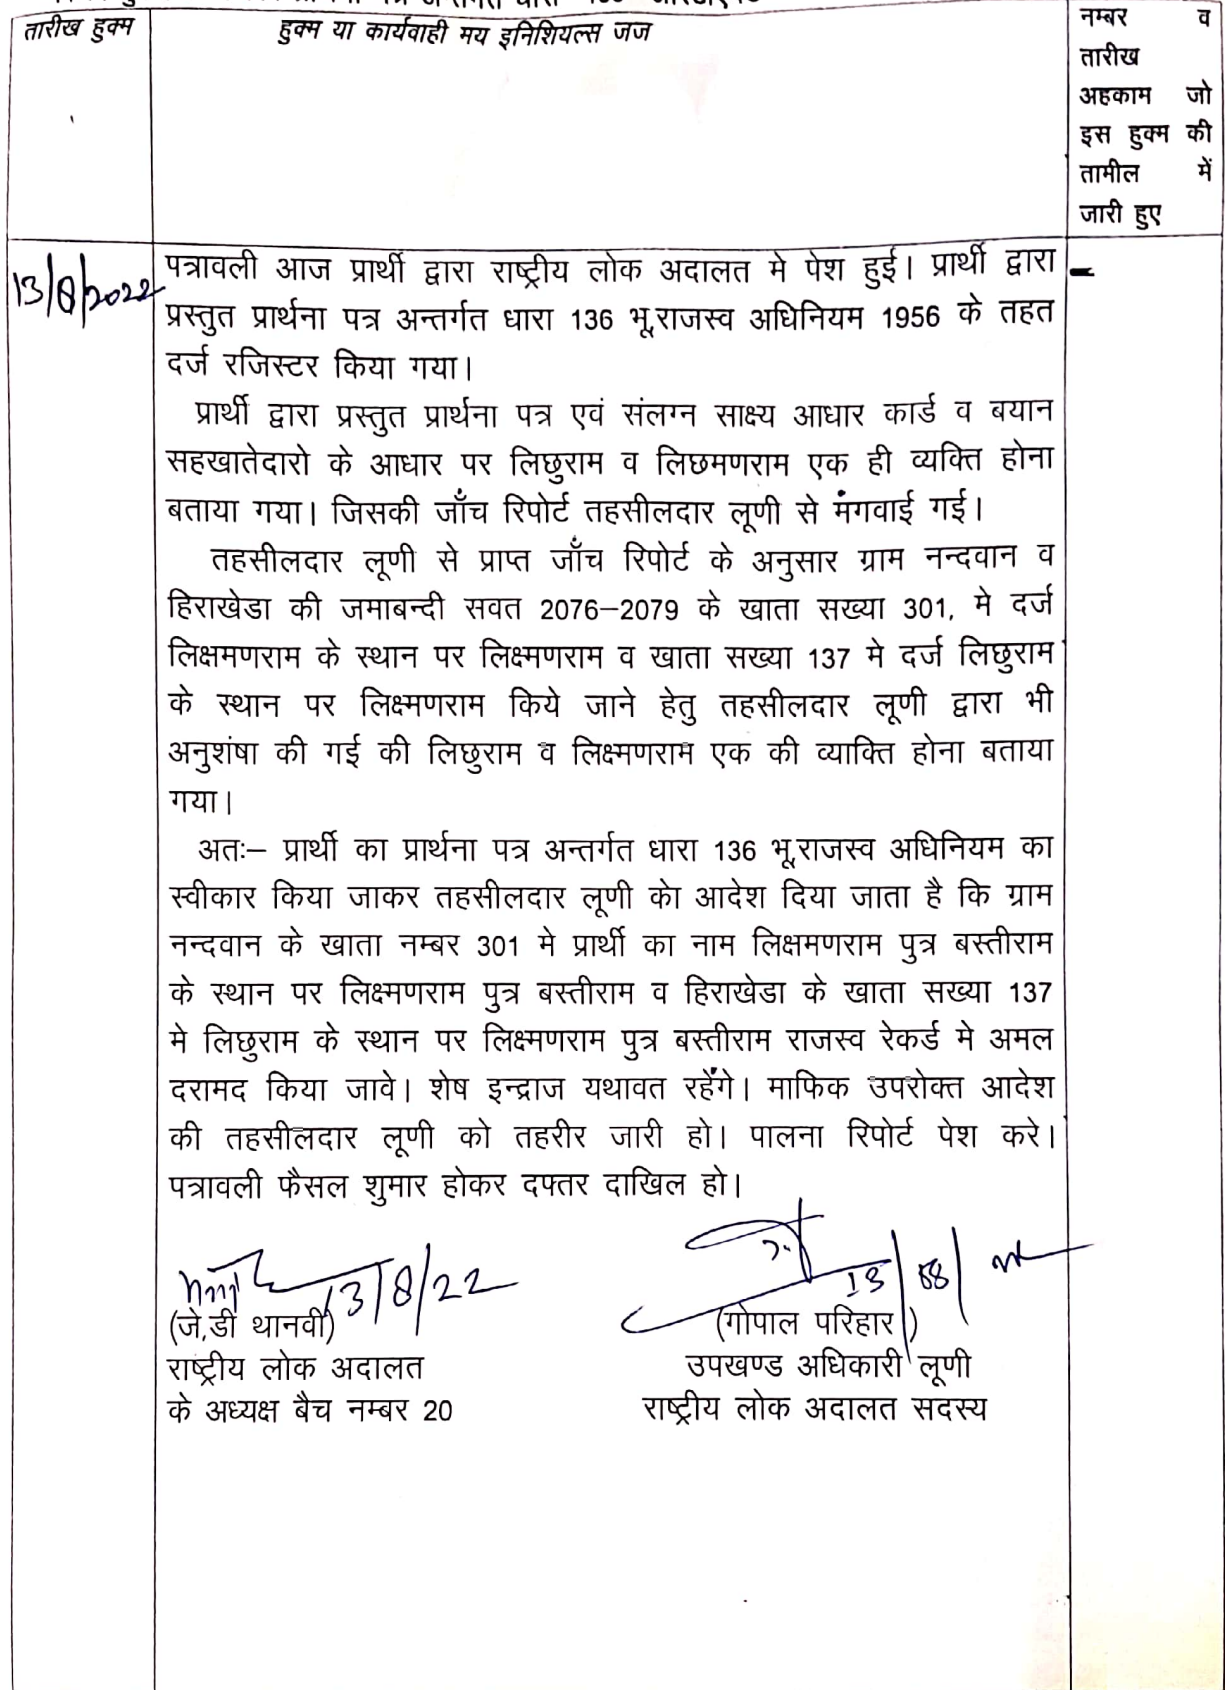 तारीख हुक्म
हुक्म या कार्यवाही मय इनिशियल्स जज
नम्बर व
तारीख
अहकाम जो
इस हुक्म की
तामील में
जारी हुए
13/8/2022
पत्रावली आज प्रार्थी द्वारा राष्ट्रीय लोक अदालत मे पेश हुई। प्रार्थी द्वारा
प्रस्तुत प्रार्थना पत्र अन्तर्गत धारा 136 भू.राजस्व अधिनियम 1956 के तहत
दर्ज रजिस्टर किया गया।
प्रार्थी द्वारा प्रस्तुत प्रार्थना पत्र एवं संलग्न साक्ष्य आधार कार्ड व बयान
सहखातेदारो के आधार पर लिछुराम व लिछमणराम एक ही व्यक्ति होना
बताया गया। जिसकी जाँच रिपोर्ट तहसीलदार लूणी से मंगवाई गई।
तहसीलदार लूणी से प्राप्त जाँच रिपोर्ट के अनुसार ग्राम नन्दवान व
हिराखेडा की जमाबन्दी सवत 2076–2079 के खाता सख्या 301, मे दर्ज
लिक्षमणराम के स्थान पर लिक्ष्मणराम व खाता सख्या 137 मे दर्ज लिछुराम
के स्थान पर लिक्ष्मणराम किये जाने हेतु तहसीलदार लूणी द्वारा भी
अनुशंषा की गई की लिछुराम व लिक्ष्मणराम एक की व्याक्ति होना बताया
गया।
अतः– प्रार्थी का प्रार्थना पत्र अन्तर्गत धारा 136 भू.राजस्व अधिनियम का
स्वीकार किया जाकर तहसीलदार लूणी केा आदेश दिया जाता है कि ग्राम
नन्दवान के खाता नम्बर 301 मे प्रार्थी का नाम लिक्षमणराम पुत्र बस्तीराम
के स्थान पर लिक्ष्मणराम पुत्र बस्तीराम व हिराखेडा के खाता सख्या 137
मे लिछुराम के स्थान पर लिक्ष्मणराम पुत्र बस्तीराम राजस्व रेकर्ड मे अमल
दरामद किया जावे। शेष इन्द्राज यथावत रहेंगे। माफिक उपरोक्त आदेश
की तहसीलदार लूणी को तहरीर जारी हो। पालना रिपोर्ट पेश करे।
पत्रावली फैसल शुमार होकर दफ्तर दाखिल हो।
13/8/22
13/08/
(जे.डी थानवी)
(गोपाल परिहार)
राष्ट्रीय लोक अदालत
उपखण्ड अधिकारी लूणी
के अध्यक्ष बैच नम्बर 20
राष्ट्रीय लोक अदालत सदस्य